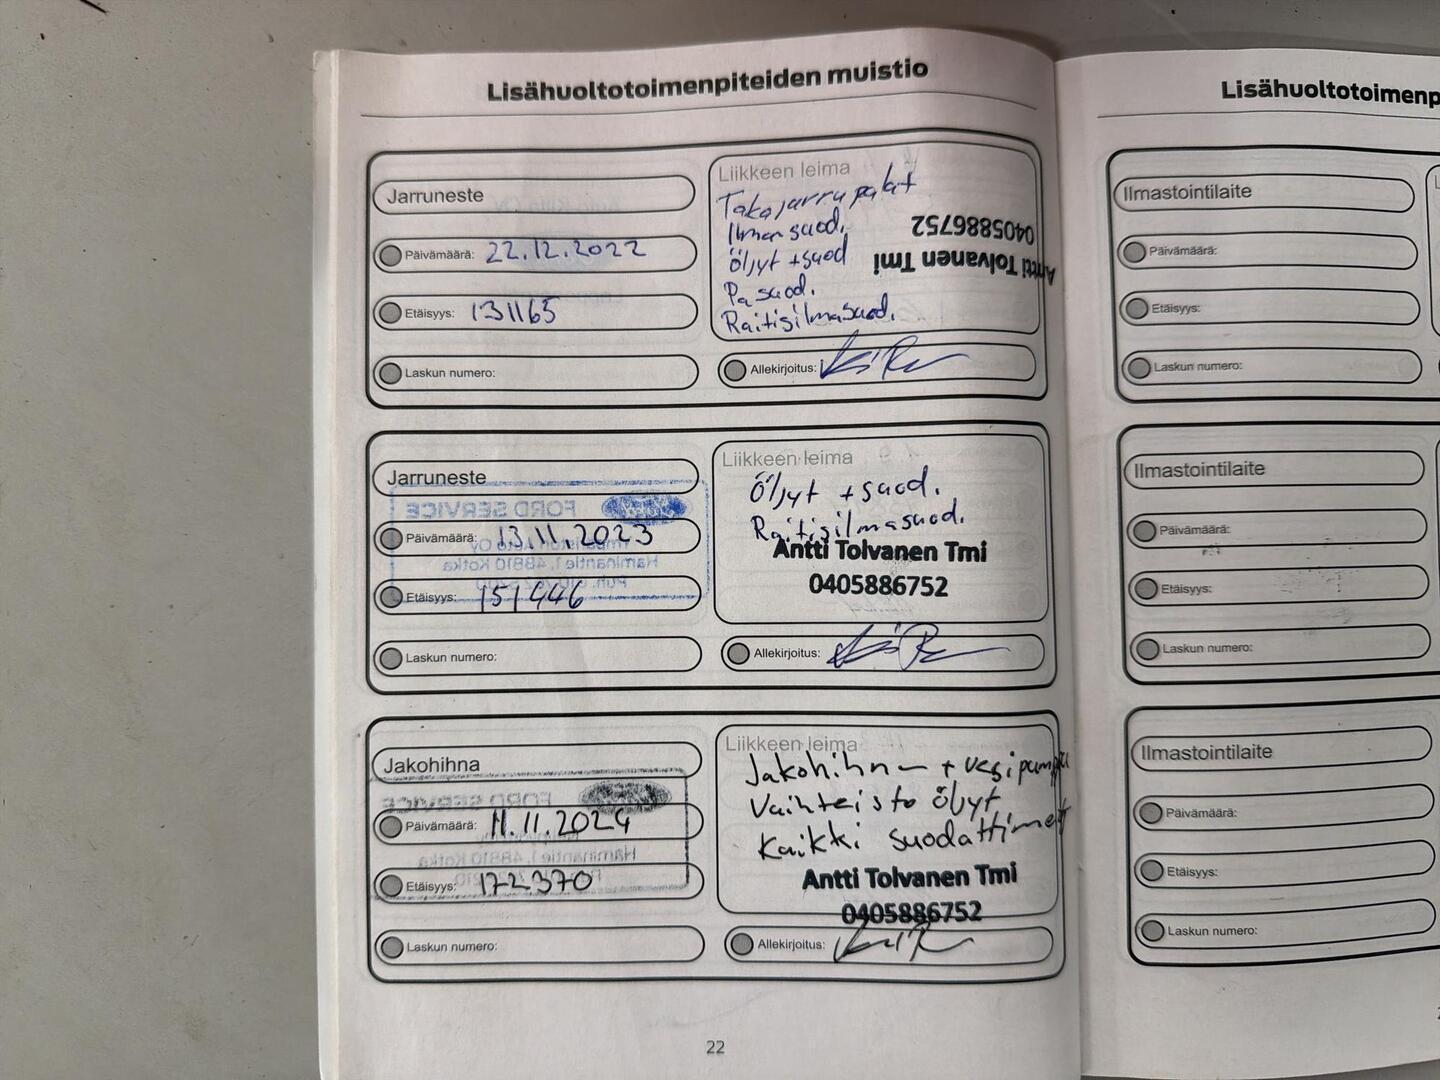 Lisähuoltotoimenpiteiden muistio
Jarruneste
Päivämäärä: 22.12.2022
Etäisyys: 131165
Laskun numero:
Liikkeen leima
Takajarrupalat
Ilmansuod.
Öljyt + suod
Pa suod.
Raitisilmasuod.
Antti Tolvanen Tmi
0405886752
Allekirjoitus:
Jarruneste
FORD SERVICE
Päivämäärä: 13.11.2023
Haminantie 1, 48810 Kotka
Etäisyys: 151446
Laskun numero:
Liikkeen leima
Öljyt + suod.
Raitisilmasuod.
Antti Tolvanen Tmi
0405886752
Allekirjoitus:
Jakohihna
FORD SERVICE
Päivämäärä: 11.11.2024
Haminantie 1, 48810 Kotka
Etäisyys: 172370
Laskun numero:
Liikkeen leima
Jakohihna + vesipumppu
Vaihteisto öljyt
Kaikki suodattimet
Antti Tolvanen Tmi
0405886752
Allekirjoitus:
22
Lisähuoltotoimenp
Ilmastointilaite
Päivämäärä:
Etäisyys:
Laskun numero:
Ilmastointilaite
Päivämäärä:
Etäisyys:
Laskun numero:
Ilmastointilaite
Päivämäärä:
Etäisyys:
Laskun numero: